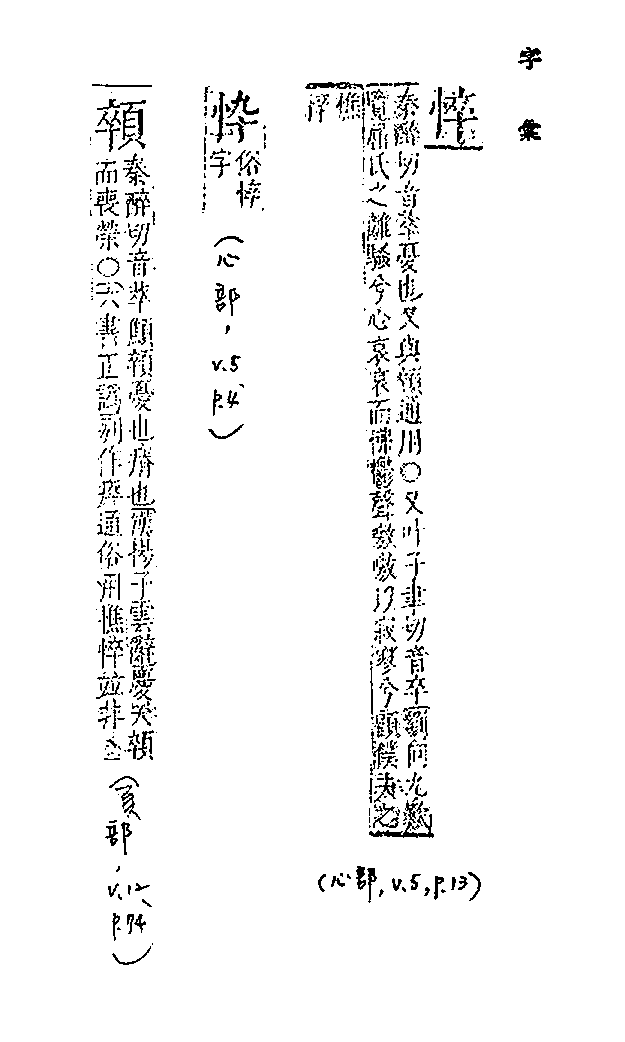 字彙
悴
秦醉切音萃憂也又與顇通用○又叶子聿切音卒劉向九歎
覽屈氏之離騷兮心哀哀而怫鬱聲嗷嗷以寂寥兮顧僕夫之
憔
悴
(心部, v.5, p.13)
忰
俗悴
字
(心部, v.5 p.4)
顇
秦醉切音萃顦顇憂也瘠也漢揚子雲辭慶夭顇
而喪榮○六書正譌別作瘁通俗用憔悴並非
(頁部, v.12, p.74)